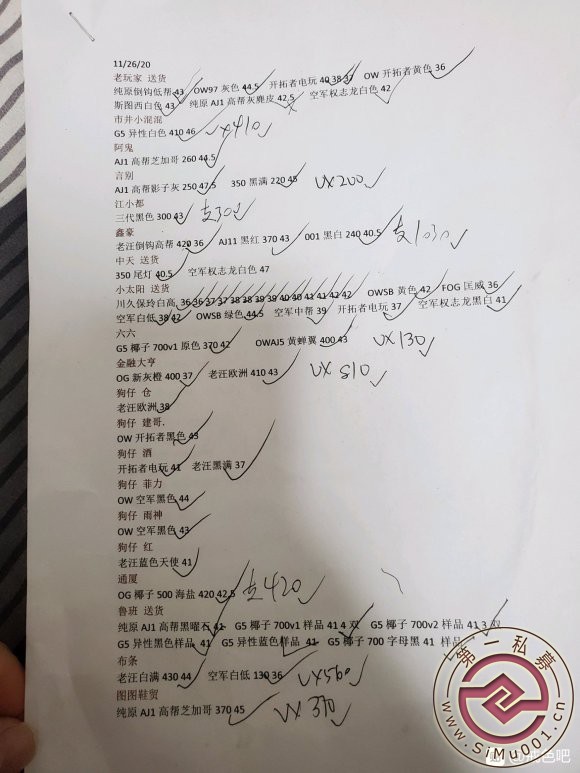 11/26/20
老玩家 送货
纯原倒钩低帮 43 OW97 灰色 44.5 开拓者电玩 40 38 37 OW 开拓者黄色 36
斯图西白色 43 纯原 AJ1 高帮灰麂皮 42.5 空军权志龙白色 42
市井小混混
G5 异性白色 410 46 VX410
阿鬼
AJ1 高帮芝加哥 260 44.5
言别
AJ1 高帮影子灰 250 47.5 350 黑满 220 45 VX200
江小都
三代黑色 300 43 支300
鑫豪
老汪倒钩高帮 420 36 AJ11 黑红 370 43 001 黑白 240 40.5 支1030
中天 送货
350 尾灯 40.5 空军权志龙白色 47
小太阳 送货
川久保玲白高 36 36 37 37 38 38 39 39 40 40 41 41 42 42 OWSB 黄色 42 FOG 匡威 36
空军白低 38 42 OWSB 绿色 44.5 空军中帮 39 开拓者电玩 37 空军权志龙黑白 41
六六
G5 椰子 700v1 原色 370 42 OWAJ5 黄蝉翼 400 43 VX130
金融大亨
OG 新灰橙 400 37 老汪欧洲 410 43 VX810
狗仔 仓
老汪欧洲 38
狗仔 建哥.
OW 开拓者黑色 43
狗仔 酒
开拓者电玩 41 老汪黑满 37
狗仔 菲力
OW 空军黑色 44
狗仔 雨神
OW 空军黑色 43
狗仔 红
老汪蓝色天使 41
通厦
OG 椰子 500 海盐 420 42.5 支420
鲁班 送货
纯原 AJ1 高帮黑曜石 41 G5 椰子 700v1 样品 41 4 双 G5 椰子 700v2 样品 41 3 双
G5 异性黑色样品 41 G5 异性蓝色样品 41 G5 椰子 700 字母黑 41 样品
布条
老汪白满 430 44 空军白低 130 36 VX560
图图鞋贸
纯原 AJ1 高帮芝加哥 370 45 VX370
第一私募
www.SiMu001.cn